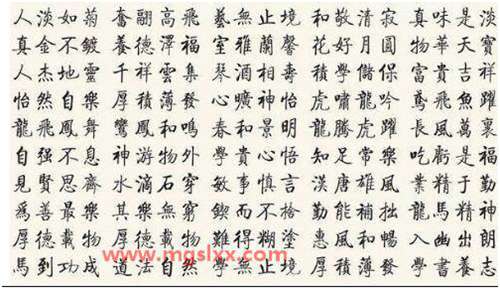 人淡如菊 奮翮高飛 藝無止境 和敬清寂 真味是淡
真金不鍍 養德澤福 室雅蘭馨 花好月圓 物華天寶
人杰地靈 千祥雲集 琴酒相壽 積學儲保 富貴吉祥
怡然自樂 厚積薄發 心曠神怡 虎嘯龍吟 鳶飛魚躍
龍飛鳳舞 鸞鳳和鳴 春和景明 龍騰虎躍 長風萬裏
自强不息 神游物外 學貴心悟 知足常樂 吃虧是福
見賢思齊 水滴石穿 敏事慎言 漢唐雄風 業精于勤
爲善最樂 其樂無窮 鍥而不捨 勤能補拙 龍馬精神
厚德載物 難得糊塗 惠風和暢 入幽出朗
馬到功成 道法自然 學無止境 厚積薄發 學書養志
www.mqslxx.com